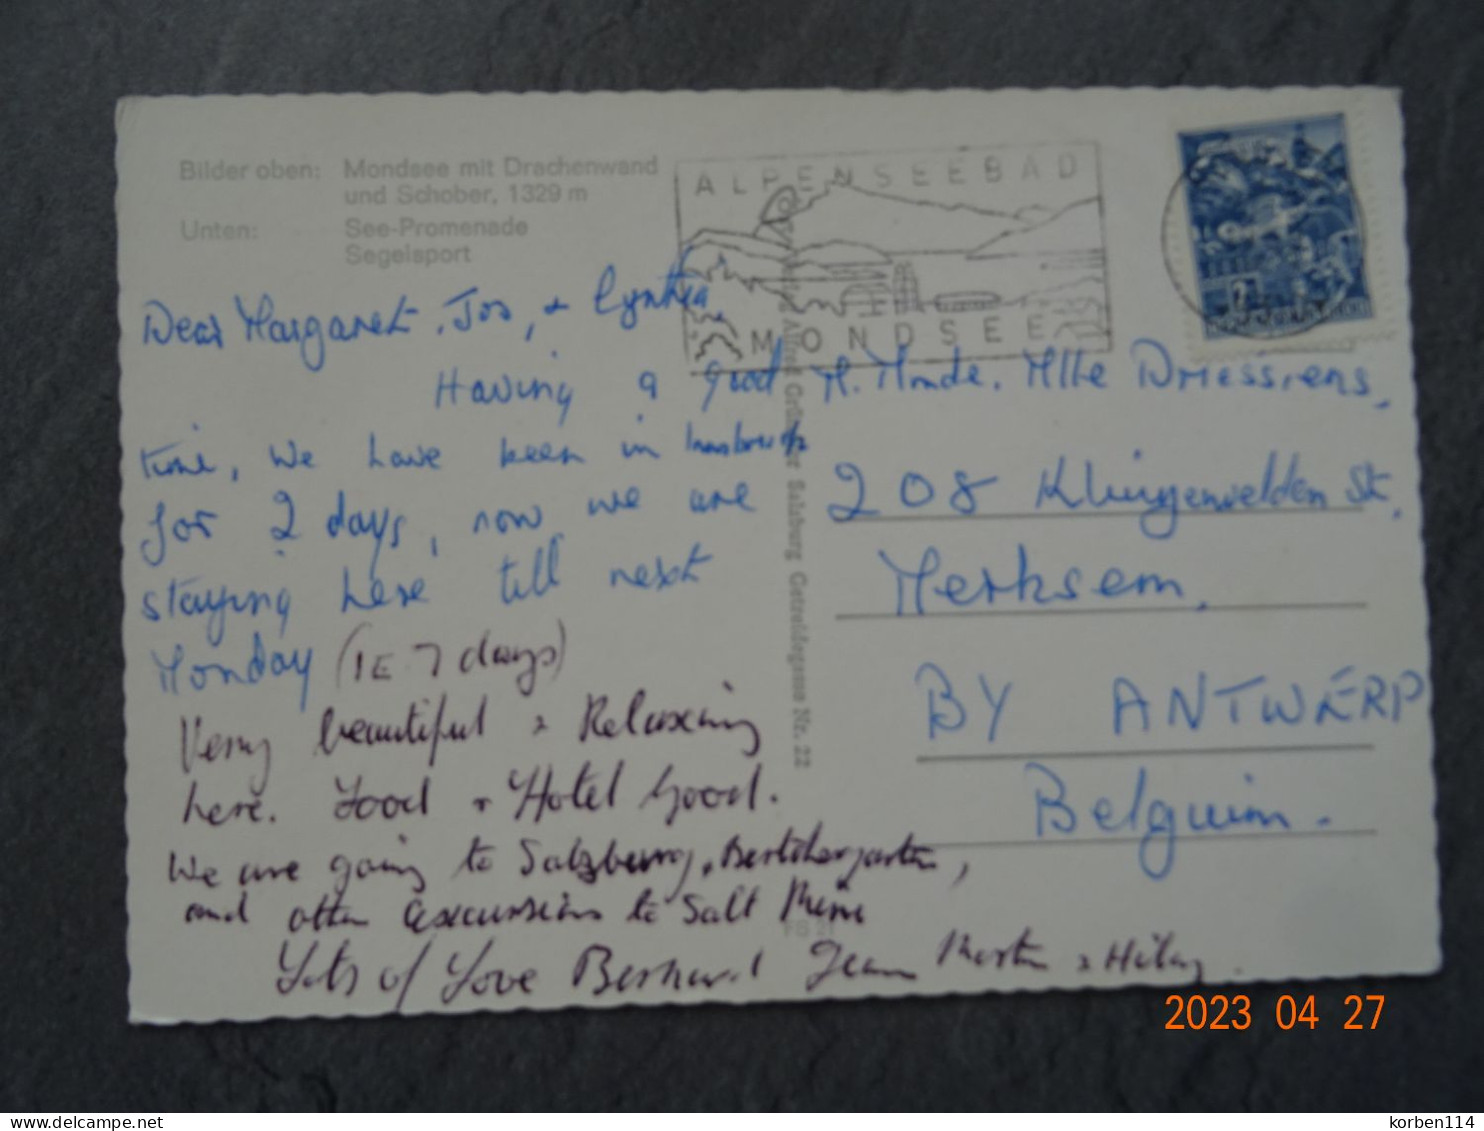 Bilder oben: Mondsee mit Drachenwand
und Schober, 1329 m
Unten: See-Promenade
Segelsport
ALPENSEEBAD
MONDSEE
Dear Margaret, Jos, + Cynthia,
Having a good
time, we have been in Innsbruck
for 2 days, now we are
staying here till next
Monday (IE 7 days)
Very beautiful & Relaxing
here. Food + Hotel Good.
We are going to Salzburg, Bertchergarten,
and other excursions to Salt Mine
Lots of Love Bernard Jean Martin & Hilary.
M. Monde. Mlle Driessens,
208 Klingenvelden St,
Merksem,
BY ANTWERP
Belguim.
Verlag Alfred Grüner Salzburg Getreidegasse Nr. 22
2023 04 27
delcampe.net
korben114